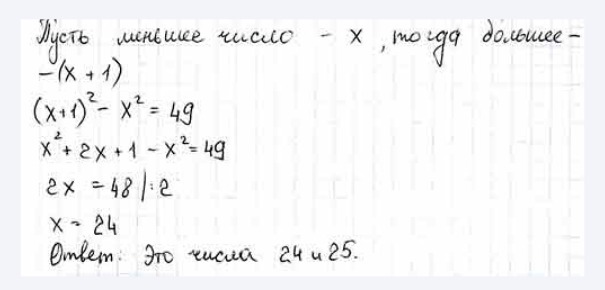 Пусть меньшее число - x, тогда большее -
- (x + 1)
(x+1)² - x² = 49
x² + 2x + 1 - x² = 49
2x = 48 | : 2
x = 24
Ответ: Это числа 24 и 25.